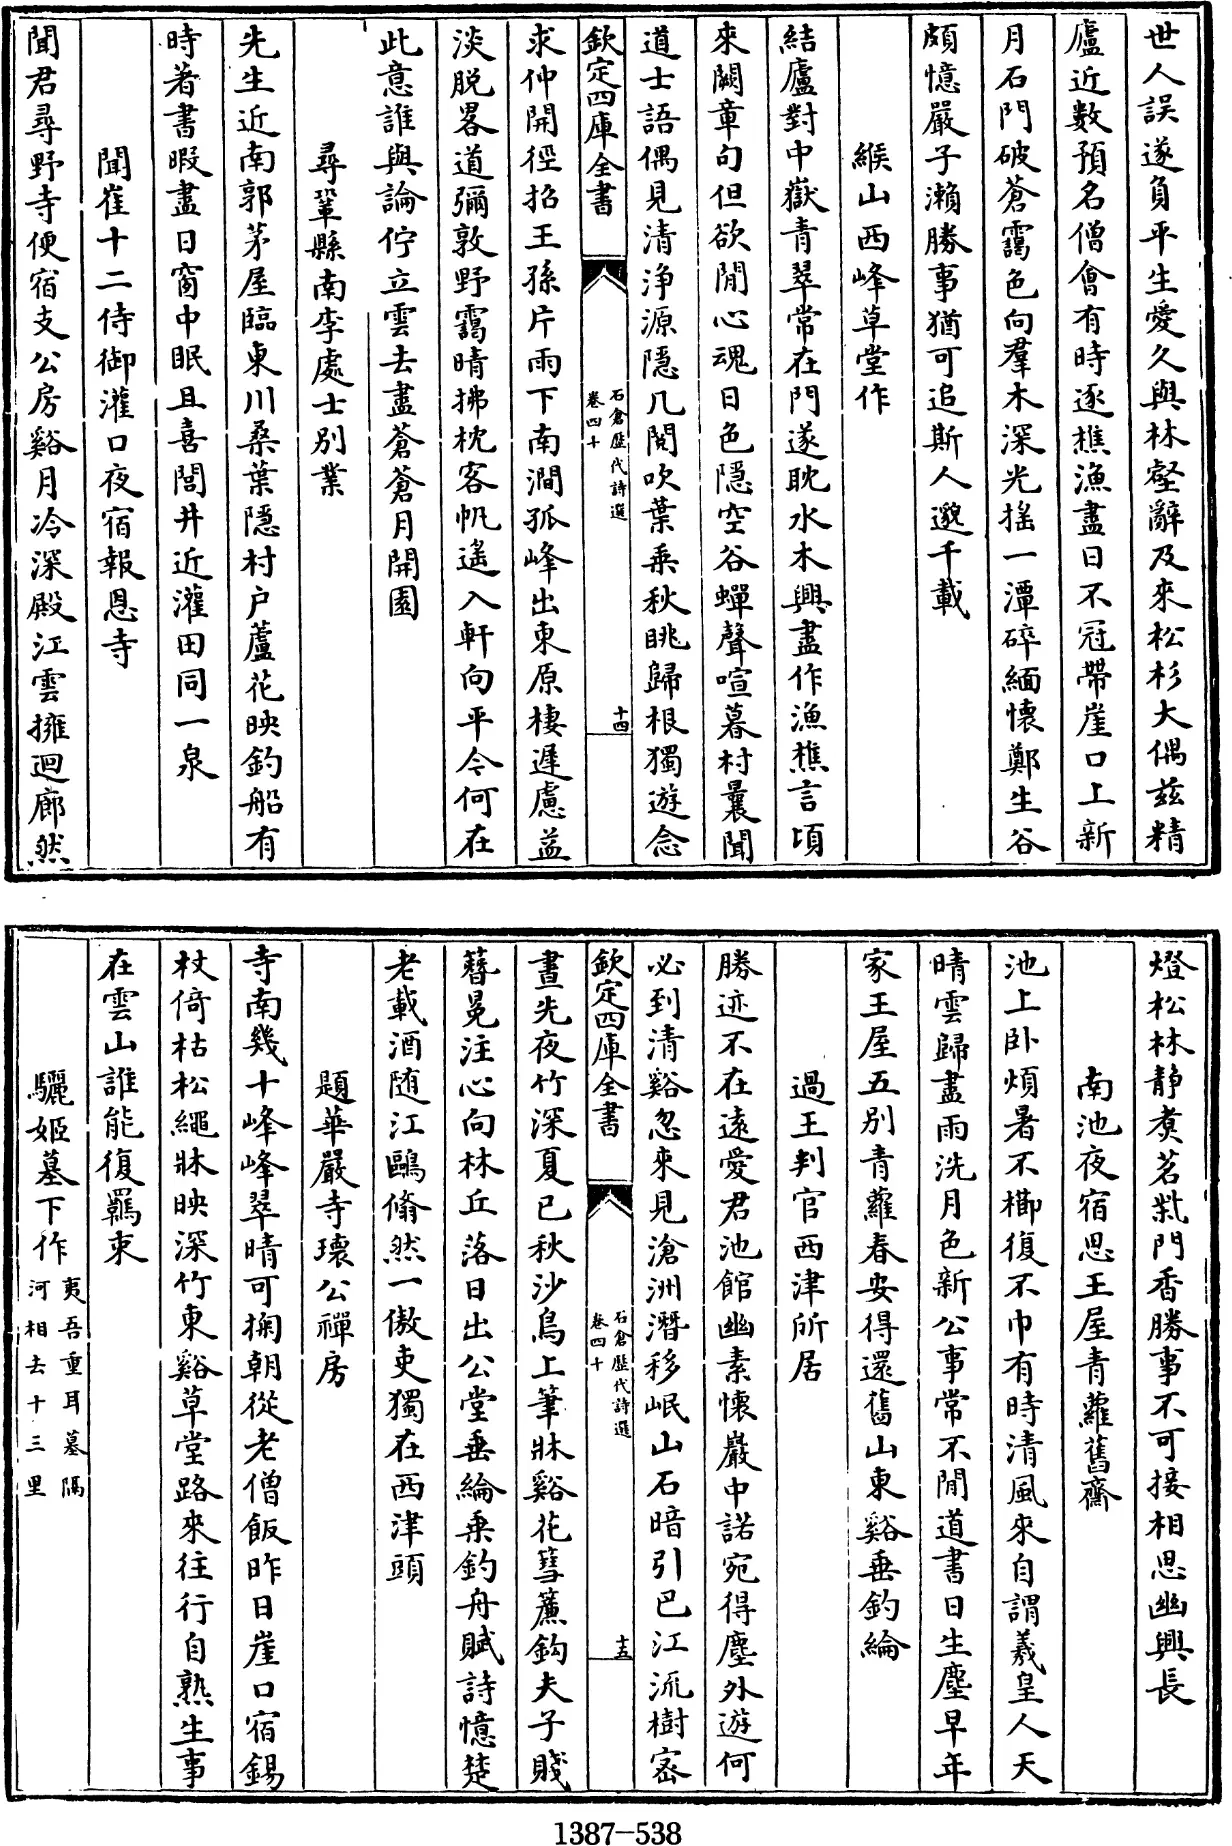 世人誤遂負平生愛久與林壑辭及來松杉大偶茲精
廬近數預名僧會有時逐樵漁盡日不冠帶崖口上新
月石門破蒼靄色向羣木深光摇一潭碎緬懷鄭生谷
頗憶嚴子瀨勝事猶可追斯人邈千載
緱山西峰草堂作
結廬對中嶽青翠常在門遂耽水木興盡作漁樵言頃
來闕章句但欲閒心魂日色隠空谷蟬聲喧暮村曩聞
道士語偶見清浄源隠几閲吹葉乘秋眺歸根獨遊念
欽定四庫全書
石倉歴代詩選
卷四十
十四
求仲開徑招王孫片雨下南澗孤峰出東原棲遲慮益
淡脱畧道彌敦野靄晴拂枕客帆遥入軒向平今何在
此意誰與論佇立雲去盡蒼蒼月開園
尋鞏縣南李處士别業
先生近南郭茅屋臨東川桑葉隠村户蘆花映釣船有
時著書暇盡日窗中眠且喜閭井近灌田同一泉
聞崔十二侍御灌口夜宿報恩寺
聞君尋野寺便宿支公房谿月冷深殿江雲擁迴廊然
燈松林静煑茗柴門香勝事不可接相思幽興長
南池夜宿思王屋青蘿舊齋
池上卧煩暑不櫛復不巾有時清風來自謂羲皇人天
晴雲歸盡雨洗月色新公事常不閒道書日生塵早年
家王屋五别青蘿春安得還舊山東谿垂釣綸
過王判官西津所居
勝迹不在遠愛君池館幽素懷巖中諾宛得塵外遊何
必到清谿忽來見滄洲潛移岷山石暗引巴江流樹密
欽定四庫全書
石倉歴代詩選
卷四十
十五
晝先夜竹深夏已秋沙鳥上筆牀谿花彗簾鈎夫子賤
簪冕注心向林丘落日出公堂垂綸乘釣舟賦詩憶楚
老載酒随江鷗翛然一傲吏獨在西津頭
題華嚴寺瓌公禪房
寺南幾十峰峰翠晴可掬朝從老僧飯昨日崖口宿錫
杖倚枯松繩牀映深竹東谿草堂路來往行自熟生事
在雲山誰能復羈束
驪姬墓下作
夷吾重耳墓隔
河相去十三里
1387-538